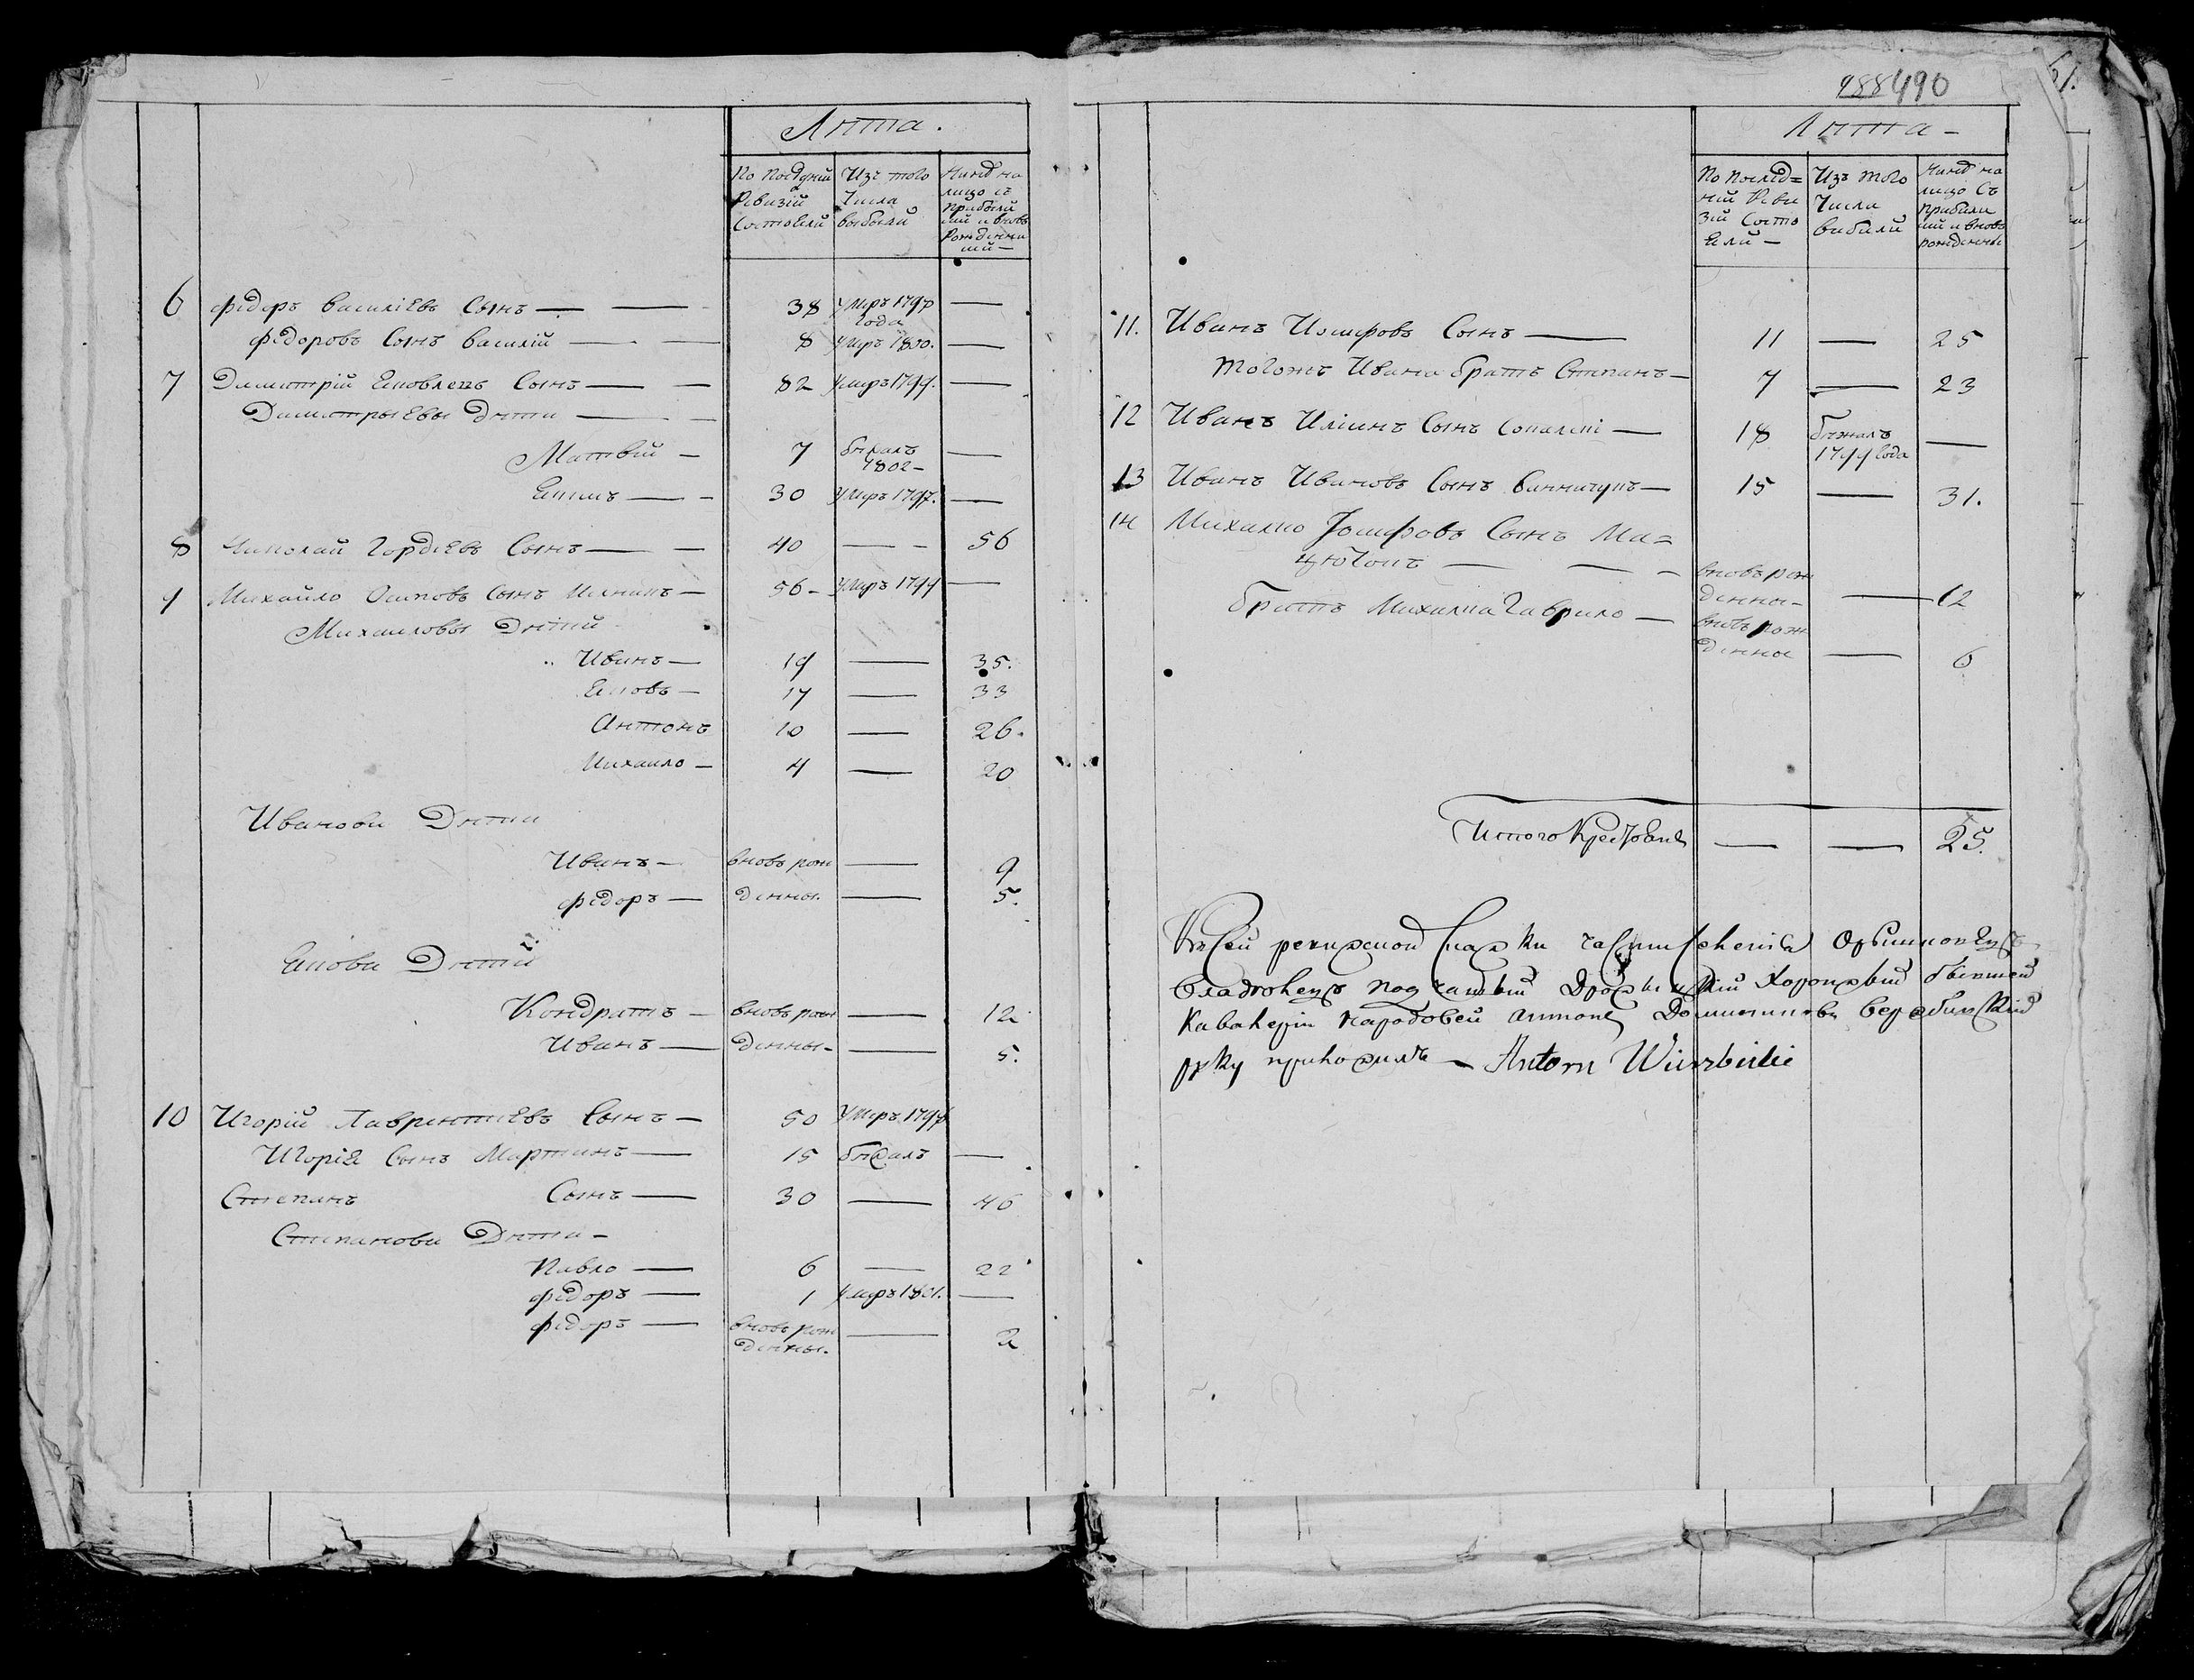 Лѣта.
По последней Ревизіи Состояли
Изъ того Числа выбыли
Нынѣ на лицо съ прибылыми и вновь рожденными —
6 Федоръ Василіевъ Сынъ — 38 умръ 1797 года —
Федоровъ Сынъ Василій — 8 умръ 1800. —
7 Димитрій Яковлевъ Сынъ — 82 умръ 1799. —
Димитрыевы Дѣти —
Матвій — 7 бѣжалъ 1802 —
30 умръ 1797. —
8 Николай Гордѣевъ Сынъ — 40 — 56
9 Михайло Осиповъ Сынъ — 56 — умръ 1799 —
Михаиловы Дѣтий
Иванъ — 19 — 35.
Яковъ — 17 — 33
Антонъ 10 — 26.
Михаило — 4 — 20
Иванови Дѣти
Иванъ — вновь рож — 9
Федоръ — денны. — 5.
Якови Дѣтий
Кондратъ — вновь рож — 12
Иванъ — денны — 5.
10 Игорій Лаврентіевъ Сынъ — 50 умръ 1798
Игорія Сынъ Мартинъ — 15 бѣжалъ —
Степанъ Сынъ — 30 — 46
Степанови Дѣти —
Павло — 6 — 22
Федоръ — 1 умръ 1801. —
Федоръ — вновь рож
денны. — 2
988490
61.
Лѣта —
По послед=
ній Реви
зіи Состо
яли —
Изъ того
Числа
вибили
Нинѣ на
лицо съ
прибили
ми и вновь
рожденны
11. Иванъ Иосифовъ Сынъ — 11 — 25
тогожъ Ивана братъ Степанъ — 7 — 23
12 Иванъ Иліинъ Сынъ — 18 бѣжалъ
1799 года —
13 Иванъ Ивановъ Сынъ — 15 — 31.
14 Михайло Іосифовъ Сынъ Ма=
— вновь рож
денны — 12
братъ Михаила Гаврило — вновь рож
денны — 6
Итого — — 25.
Къ сей ревизской сказки
владѣлецъ Хоронжый бывшей
Кавалеріи народовей Антонъ
руку приложилъ — Antoni